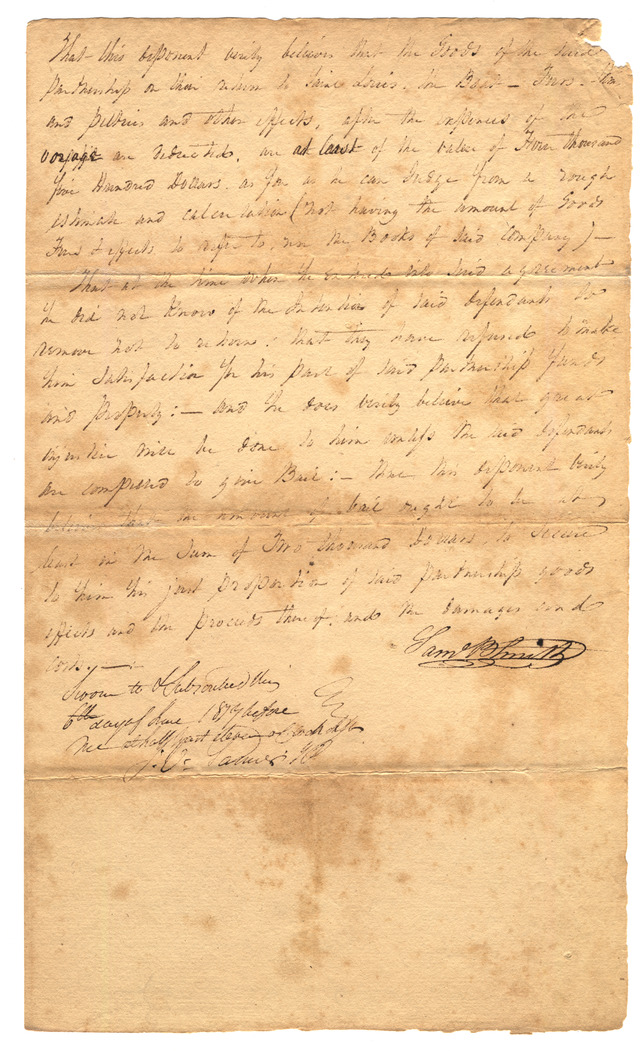 That this deponent verily believes that the Goods of the said
partnership on their return to Saint Louis, the Boat - Furs,
and peltries and other effects, after the expences of the
voyage are deducted, are at least of the value of Four thousand
five Hundred Dollars, as far as he can Judge from a rough
estimate and calculation (not having the amount of Goods
Furs & effects to refer to, nor the Books of said Company) —
That at the time when he entered into said agreement
he did not know of the Intention of said defendants to
remove not to return: that they have refused to make
him satisfaction for his part of said partnership funds
and property: — and he does verily believe that great
injustice will be done to him unless the said defendants
are compelled to give Bail: — that this deponent verily
believes that the amount of bail ought to be at
least in the Sum of Two thousand Dollars, to secure
to him his just proportion of said partnership goods
effects and the proceeds thereof; and the damages and
costs, — :
Saml B Smith
Sworn to & Subscribed this
6th day of June before
me at half past eleven o'clock